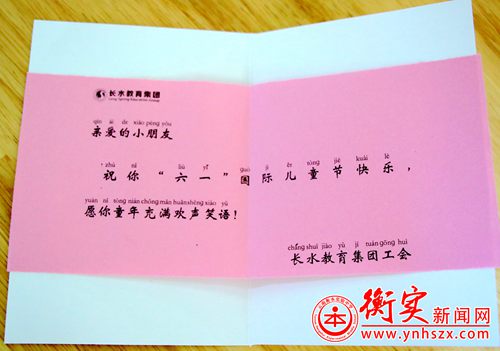 长水教育集团
qīn ài de xiǎo péng yǒu
亲爱的小朋友
zhù nǐ liù yī guó jì ér tóng jié kuài lè
祝你“六一”国际儿童节快乐，
yuàn nǐ tóng nián chōng mǎn huān shēng xiào yǔ
愿你童年充满欢声笑语！
cháng shuǐ jiào yù jí tuán gōng huì
长水教育集团工会
衡实新闻网
www.ynhszx.com